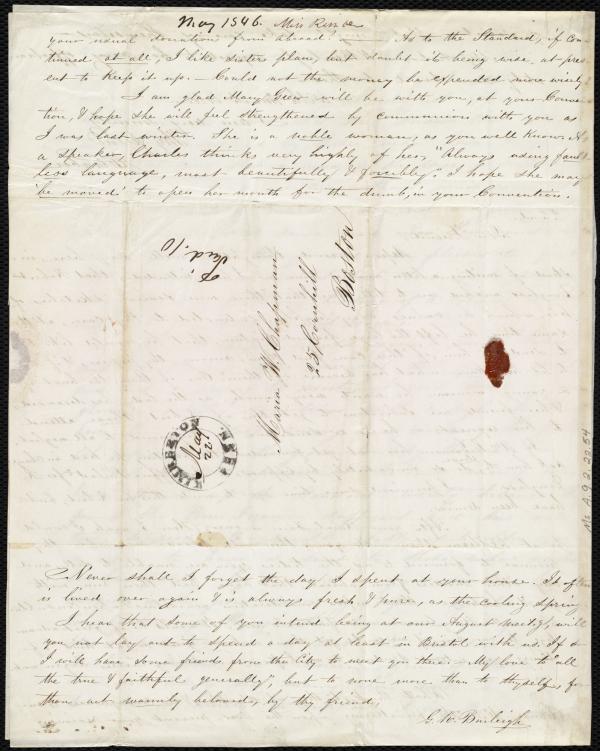 May 1846. Miss
your usual donation from abroad? — As to the Standard, if con-
tinued at all, I like sisters plan, but doubt its being wise, at pres-
ent to keep it up. — Could not the money be expended more wisely
I am glad Mary Grew will be with you, at your Conven-
tion, & hope she will feel strengthened by communion with you as
I was last winter. She is a noble woman, as you well know, &
a speaker, Charles thinks very highly of her, "Always using fault-
less language, most beautifully & forcibly." I hope she may
'be moved' to open her mouth for the dumb, in your Convention.
Paid. 10
Maria W. Chapman
25 Cornhill
Boston
KIMBERTON
May
22
PENN
Ms. A.9.2.22.54
Never shall I forget the day I spent at your house. It often
is lived over again & is always fresh & pure, as the cooling spring
I hear that some of you intend being at our August meetg, will
you not lay out to spend a day at least in Bristol with us. If so
I will have some friends from the city to meet you there. My love to "all
the true & faithful generally", but to none more than to thyself, for
thou art warmly beloved, by thy friend,
G. K. Burleigh